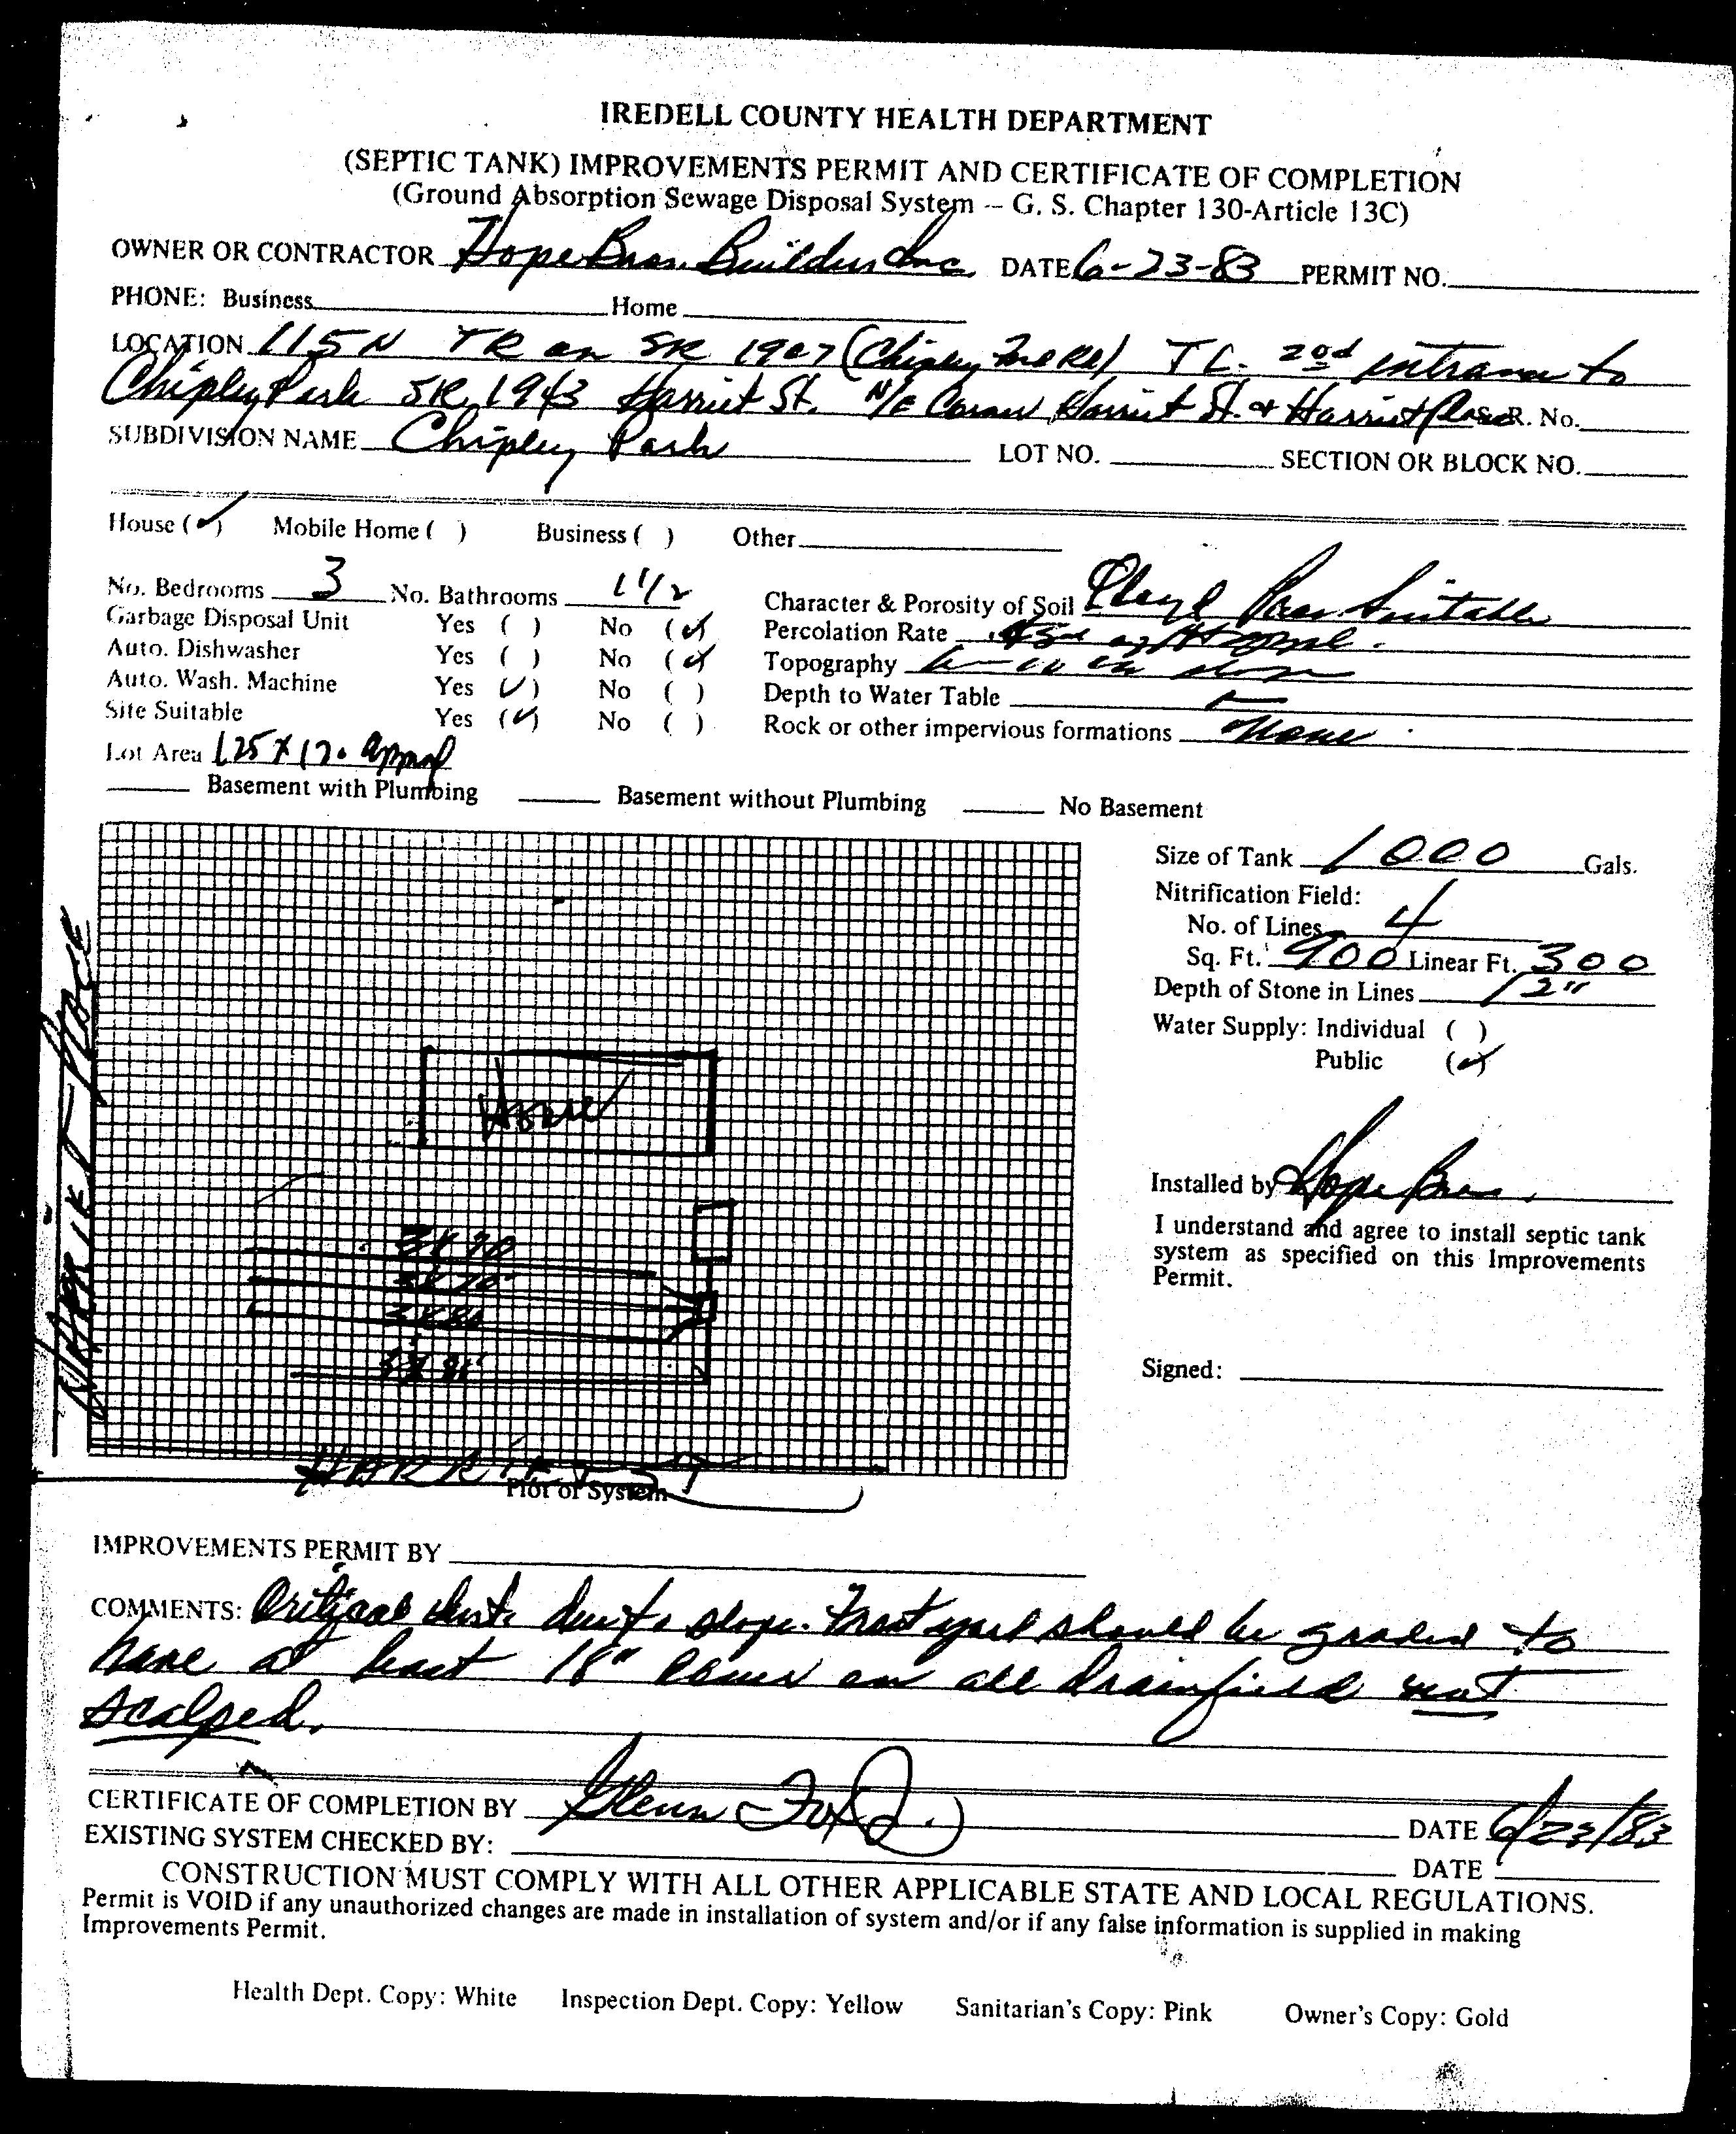 IREDELL COUNTY HEALTH DEPARTMENT
(SEPTIC TANK) IMPROVEMENTS PERMIT AND CERTIFICATE OF COMPLETION
(Ground Absorption Sewage Disposal System -- G. S. Chapter 130-Article 13C)
OWNER OR CONTRACTOR Hope Bros. Builders Inc. DATE 6-23-83 PERMIT NO.
PHONE: Business Home
LOCATION 115 N TR on SR 1907 (Chipley Rd) TL 2nd entrance to
Chipley Park SR 1943 Harriet St. N/E Corner Harriet St. & Harriet Place S.R. No.
SUBDIVISION NAME Chipley Park LOT NO. SECTION OR BLOCK NO.
House (✓) Mobile Home ( ) Business ( ) Other
No. Bedrooms 3 No. Bathrooms 1 1/2 Character & Porosity of Soil Suitable
Garbage Disposal Unit Yes ( ) No (✓) Percolation Rate
Auto. Dishwasher Yes ( ) No (✓) Topography
Auto. Wash. Machine Yes (✓) No ( ) Depth to Water Table —
Site Suitable Yes (✓) No ( ) Rock or other impervious formations None
Lot Area 125 X 170 approx
Basement with Plumbing Basement without Plumbing No Basement
Size of Tank 1000 Gals.
Nitrification Field:
No. of Lines 4
Sq. Ft. 900 Linear Ft. 300
Depth of Stone in Lines 12"
Water Supply: Individual ( )
Public (✓)
HARRIET PLACE
House
3X70
3X70
3X80
Installed by Hope Bros.
I understand and agree to install septic tank
system as specified on this Improvements
Permit.
Signed:
HARRIET ST
Plot of System
IMPROVEMENTS PERMIT BY
COMMENTS: Critical due to slope. Front yard should be graded to
have at least 18" cover on all drainfield not
scalped.
CERTIFICATE OF COMPLETION BY Glenn Fox DATE 6/23/83
EXISTING SYSTEM CHECKED BY: DATE
CONSTRUCTION MUST COMPLY WITH ALL OTHER APPLICABLE STATE AND LOCAL REGULATIONS.
Permit is VOID if any unauthorized changes are made in installation of system and/or if any false information is supplied in making
Improvements Permit.
Health Dept. Copy: White Inspection Dept. Copy: Yellow Sanitarian's Copy: Pink Owner's Copy: Gold